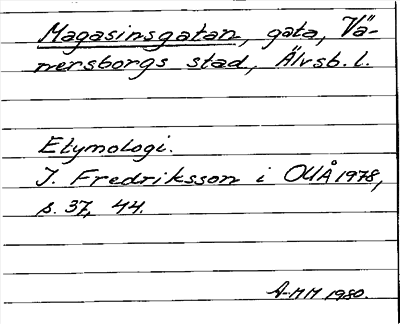 Magasinsgatan, gata, Vä-
nersborgs stad, Älvsb. l.
Etymologi.
I. Fredriksson i OUÅ 1978,
s. 37, 44.
A-MH 1980.